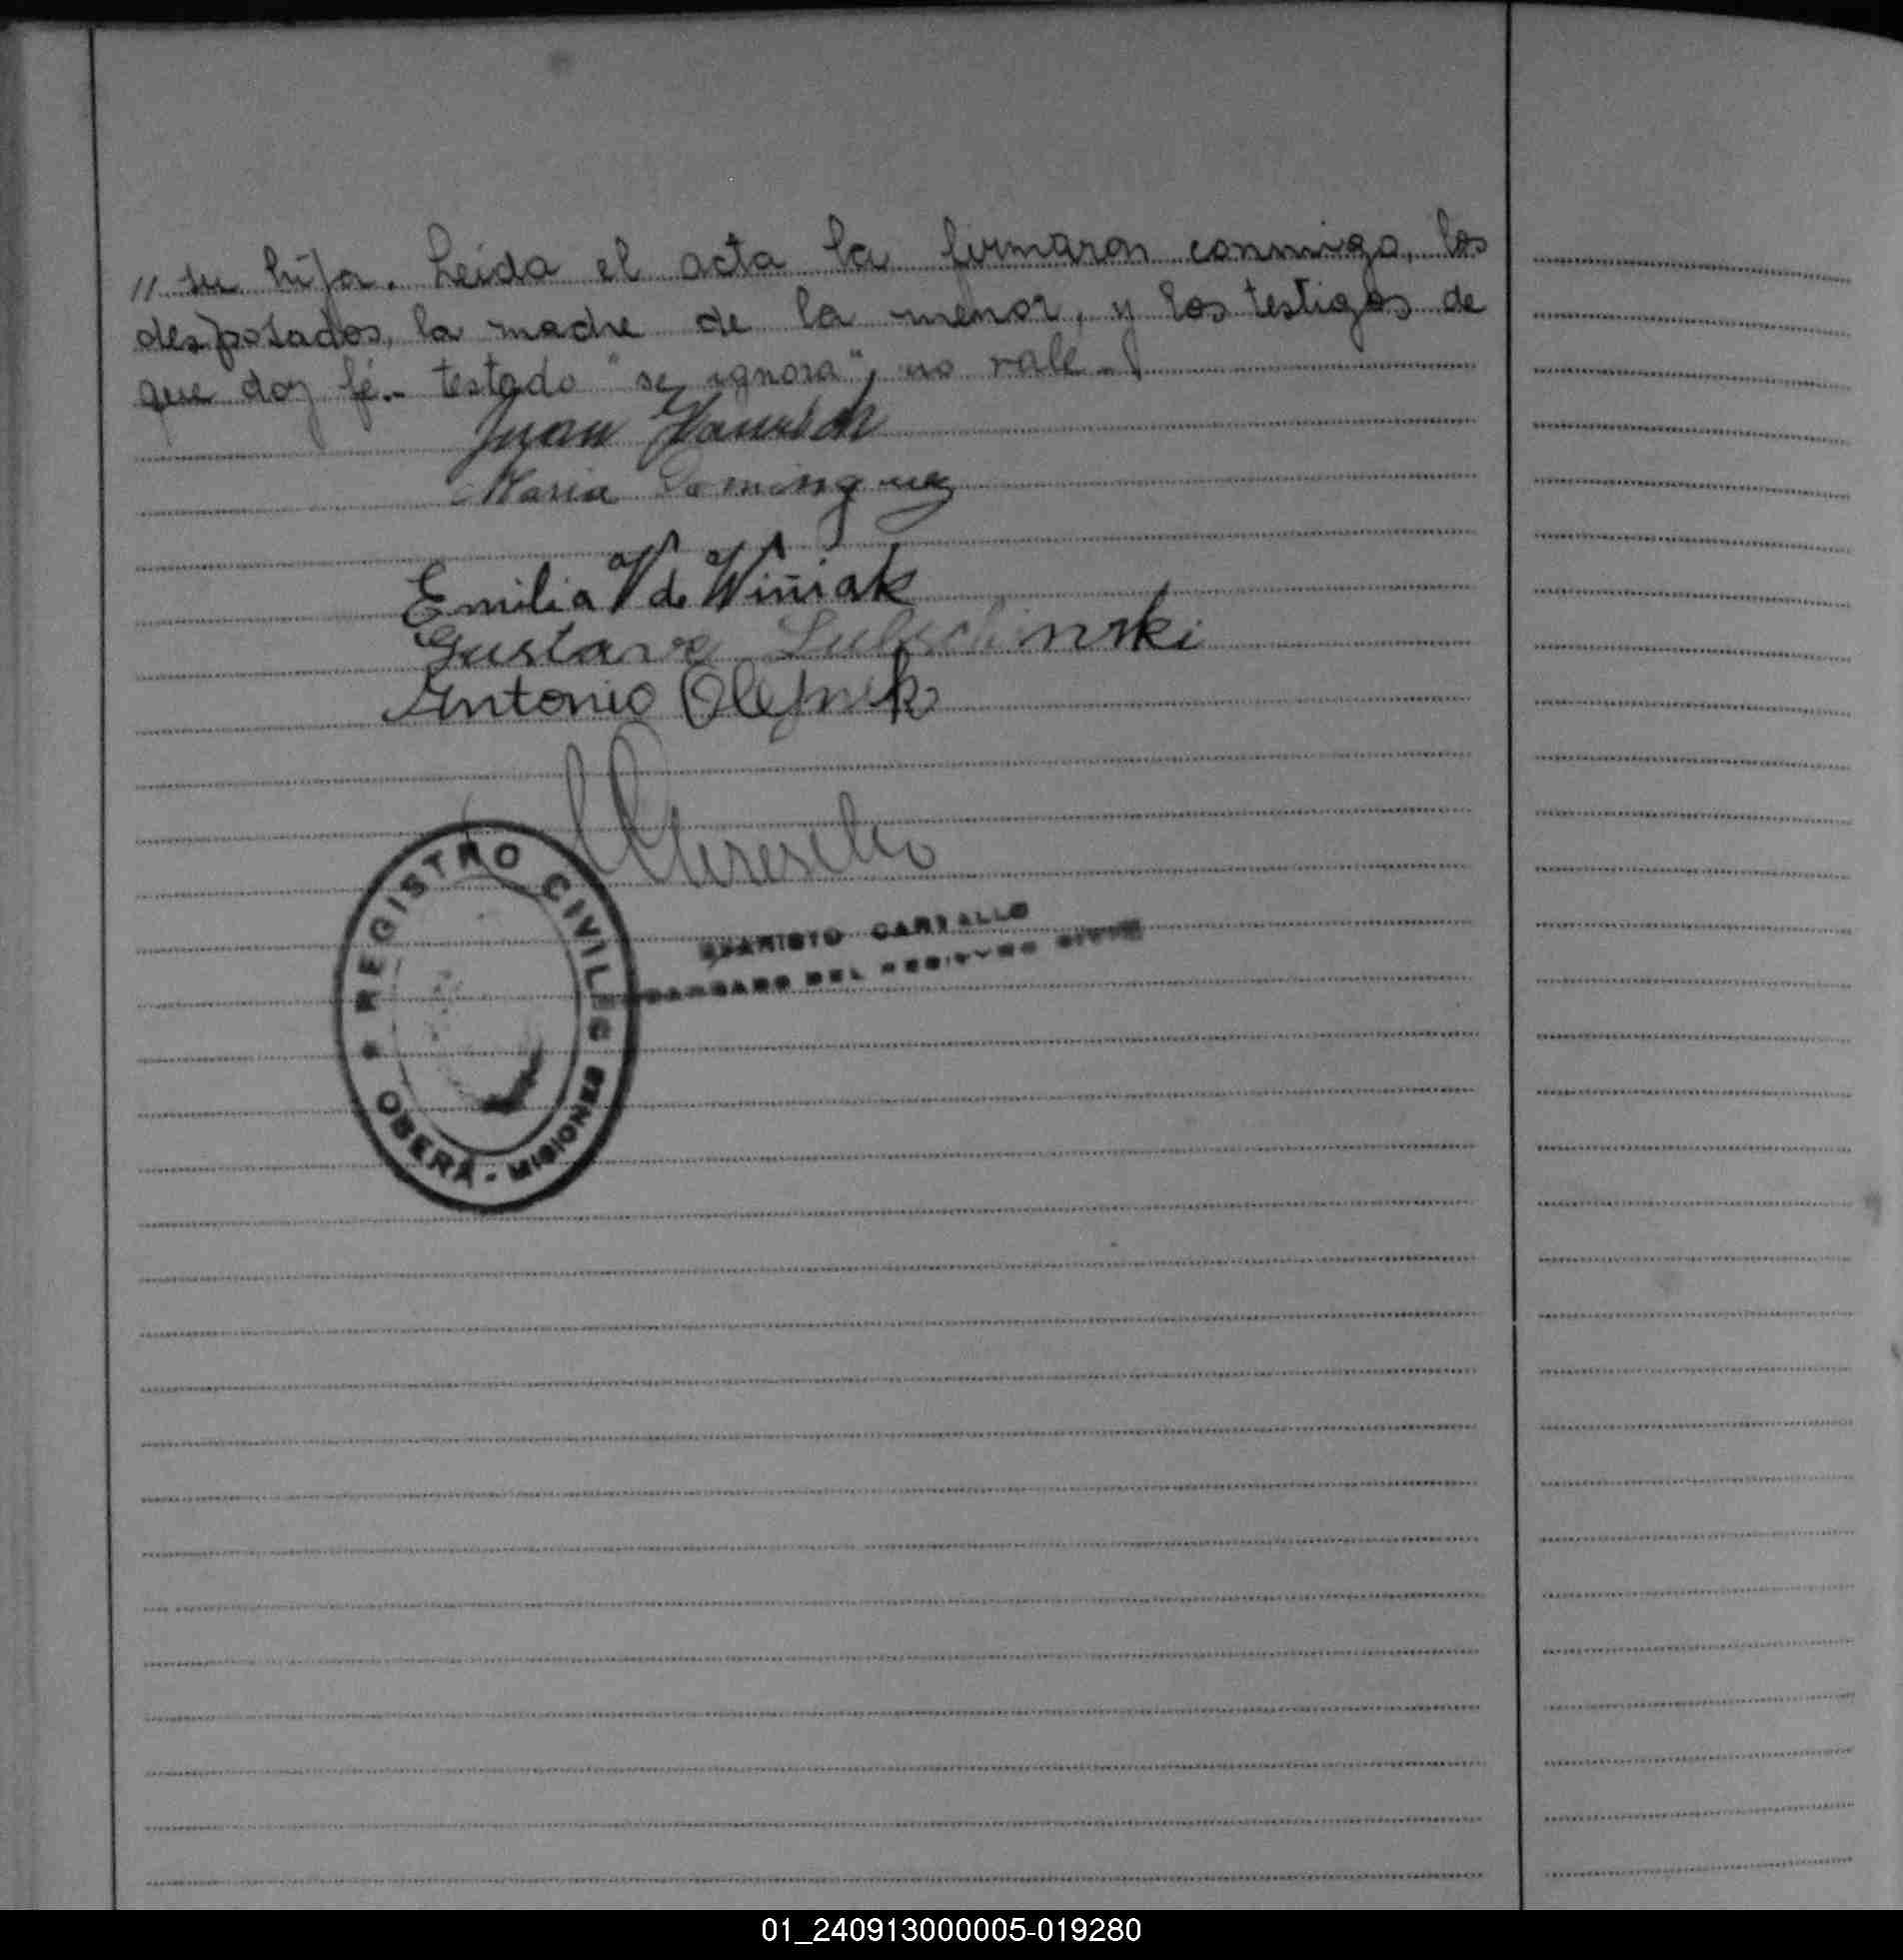 // su hija. Leida el acta la firmaron conmigo, los
desposados, la madre de la menor, y los testigos de
que doy fé.- testado "se ignora", no vale.-
Juan
Maria Dominguez
Emilia V de Winiak
Gustavo
Antonio Olejnik
REGISTRO CIVIL
OBERÁ - MISIONES
EVARISTO CARVALLO
ENCARGADO DEL REGISTRO CIVIL
01_240913000005-019280